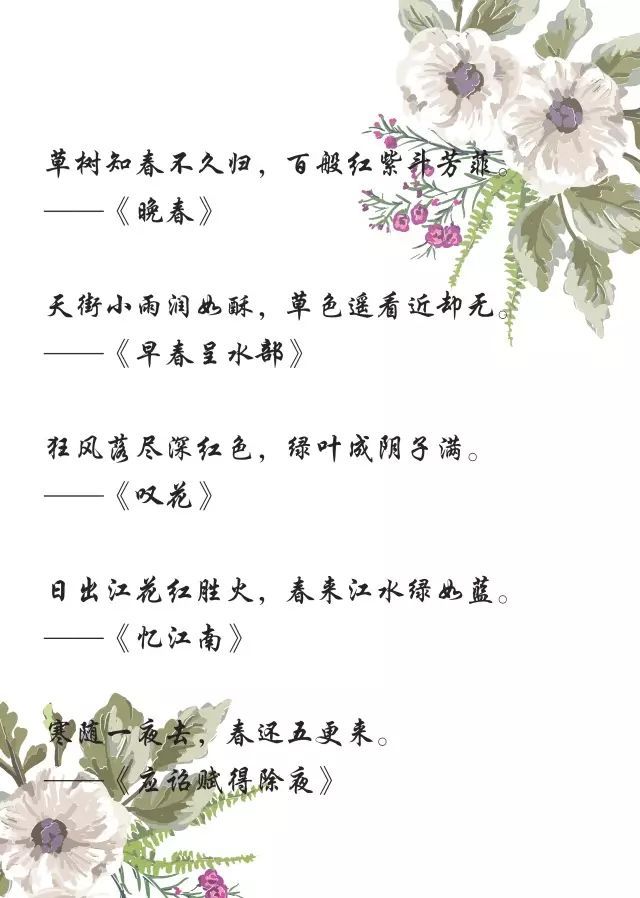 草树知春不久归，百般红紫斗芳菲。
——《晚春》
天街小雨润如酥，草色遥看近却无。
——《早春呈水部》
狂风落尽深红色，绿叶成阴子满。
——《叹花》
日出江花红胜火，春来江水绿如蓝。
——《忆江南》
寒随一夜去，春还五更来。
——《应诏赋得除夜》